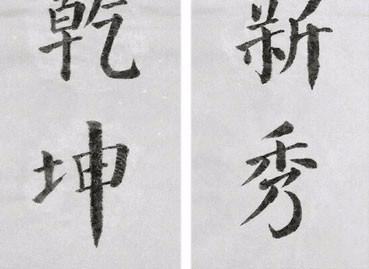 新秀
乾坤